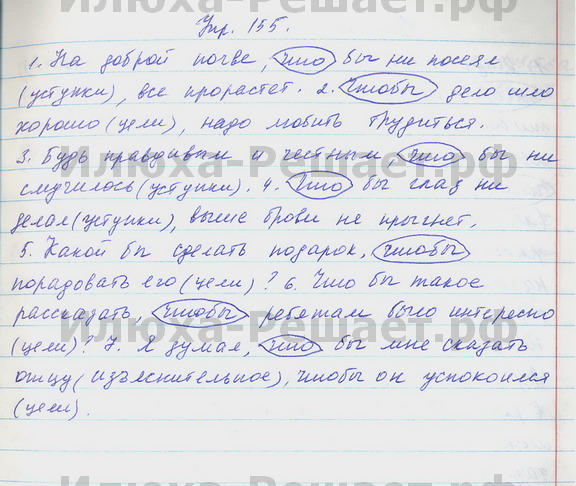 Илюха-Решает.рф
Упр. 155.
1. На доброй почве, что бы ни посеял
(уступки), все прорастет. 2. Чтобы дело шло
хорошо (цели), надо любить трудиться.
3. Будь правдивым и честным, что бы ни
случилось (уступки). 4. Что бы глаз ни
делал (уступки), выше брови не прыгнет.
5. Какой бы сделать подарок, чтобы
порадовать его (цели)? 6. Что бы такое
рассказать, чтобы ребятам было интересно
(цели)? 7. Я думал, что бы мне сказать
отцу (изъяснительное), чтобы он успокоился
(цели).
Илюха-Решает.рф
Илюха-Решает.рф
Илюха-Решает.рф